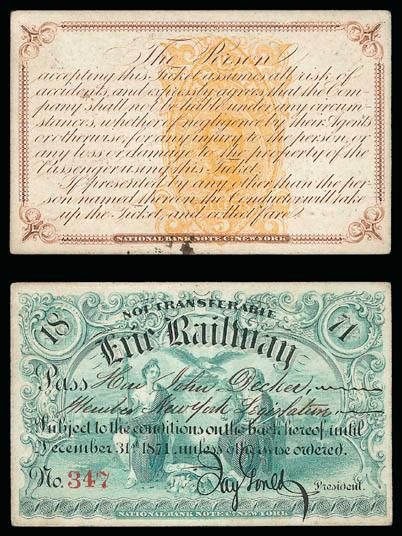 The Person
accepting this Ticket assumes all risk of
accidents, and expressly agrees that the Com-
pany shall not be liable under any circum-
stances, whether of negligence by their Agents
or otherwise, for any injury to the person, or
any loss or damage to the property of the
Passenger using this Ticket.
If presented by any other than the per-
son named thereon, the Conductor will take
up the Ticket and collect fare.
NATIONAL BANK NOTE Co. NEW YORK
NOT TRANSFERABLE
18 71
Erie Railway
Pass Hon John Decker,
Member New York Legislature
Subject to the conditions on the back hereof until
December 31st 1871, unless otherwise ordered.
No. 347
Jay Gould President.
NATIONAL BANK NOTE Co. NEW YORK